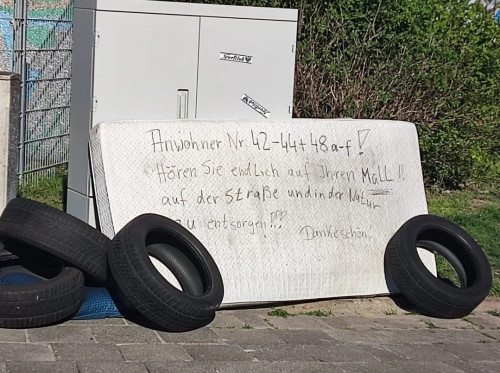 Anwohner Nr. 42-44+48a-f!
Hören Sie endlich auf Ihren MüLL!!
auf der Straße und in der Natur
zu entsorgen!!!
Dankeschön.